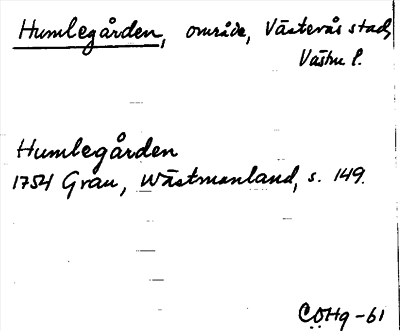 Humlegården, område, Västerås stad,
Västm l.
Humlegården
1754 Grau, Wästmanland, s. 149.
CÖHg -61